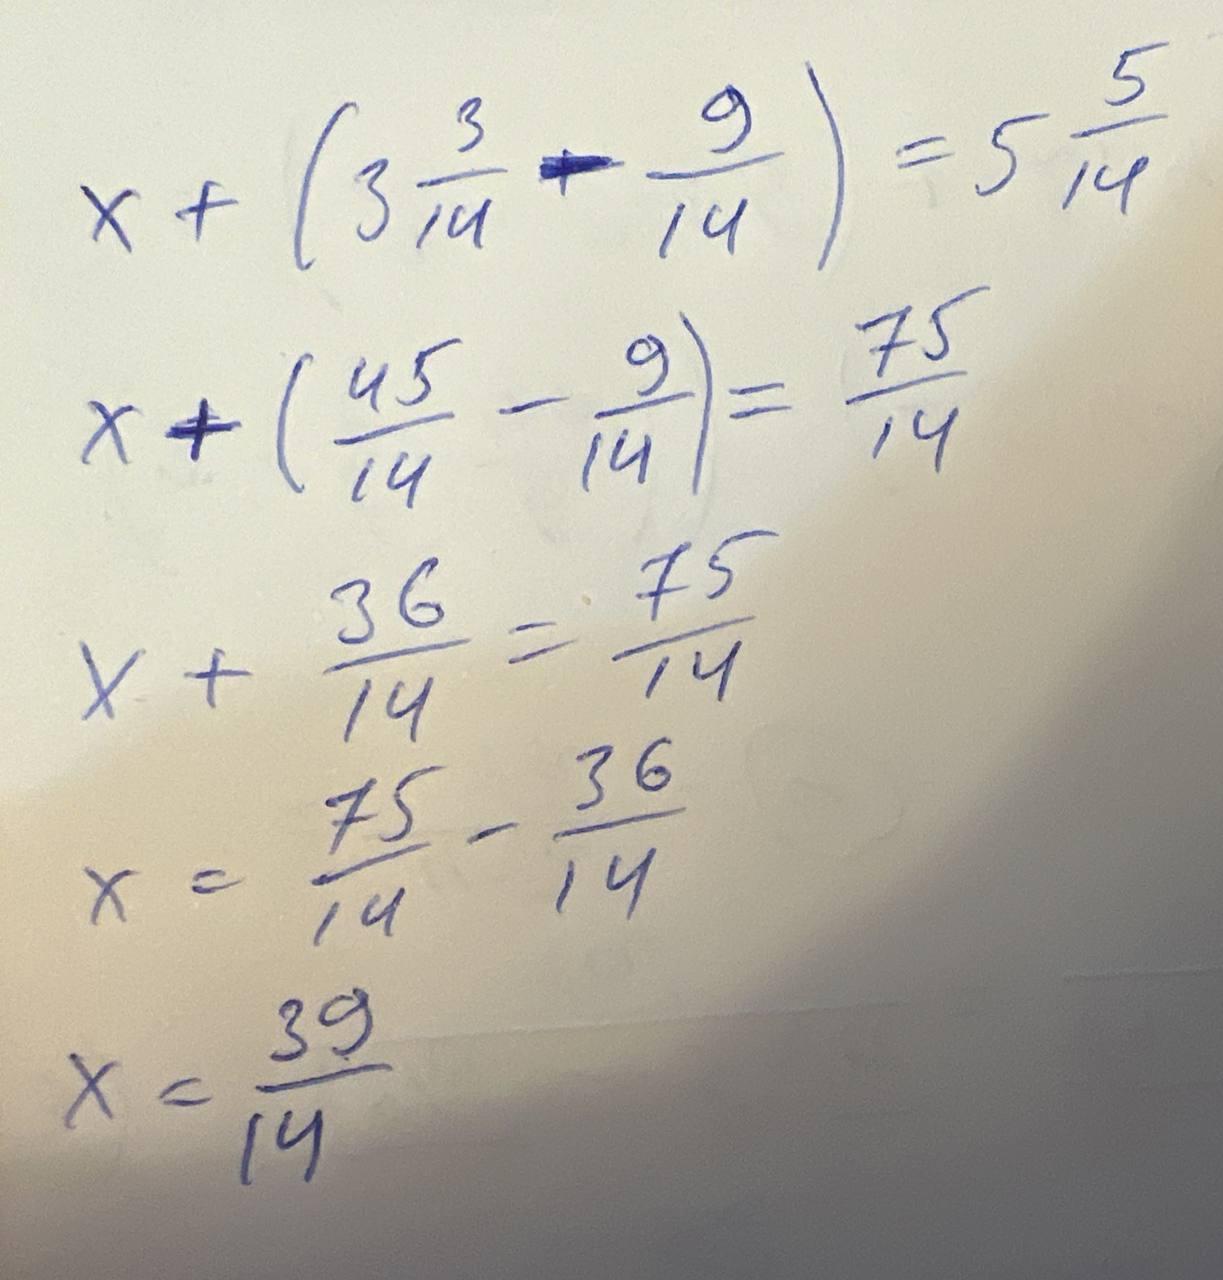 x + (3 3/14 - 9/14) = 5 5/14
x + (45/14 - 9/14) = 75/14
x + 36/14 = 75/14
x = 75/14 - 36/14
x = 39/14